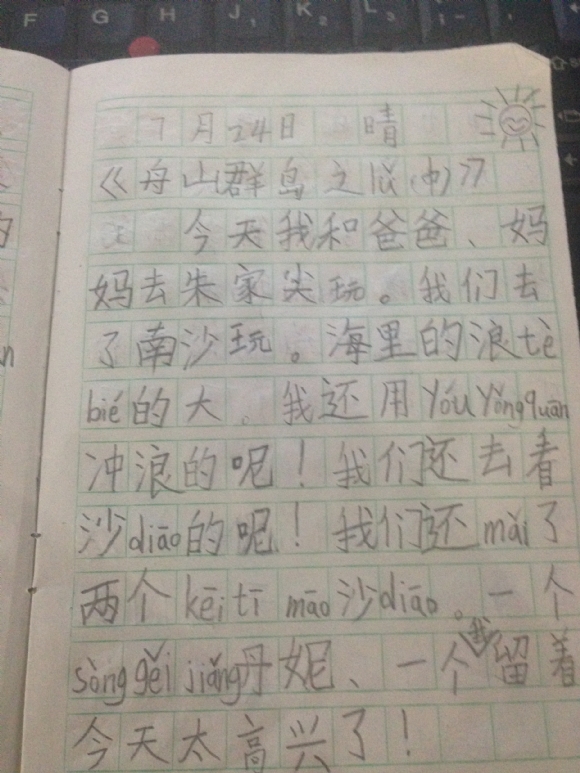 F G H J 1 K 2 L 3
7月24日 晴
《舟山群岛之lǚ(中)》
今天我和爸爸、妈
妈去朱家尖玩。我们去
了南沙玩。海里的浪tè
bié的大。我还用yóuyǒngquān
冲浪的呢！我们还去看
沙diāo的呢！我们还mǎi了
两个kēitī māo沙diāo。一个
sònggěijiǎng丹妮、一个我留着
今天太高兴了！